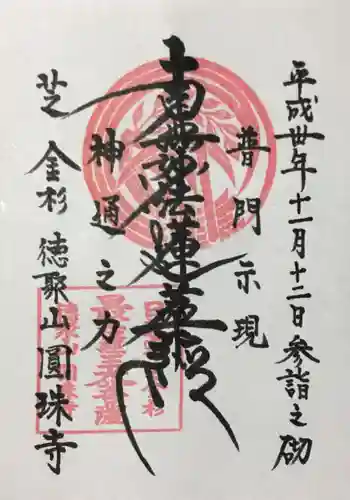 平成卅年十一月十二日参詣之砌
普門示現
南無妙法蓮華経
神通之力
芝金杉 徳聚山圓珠寺